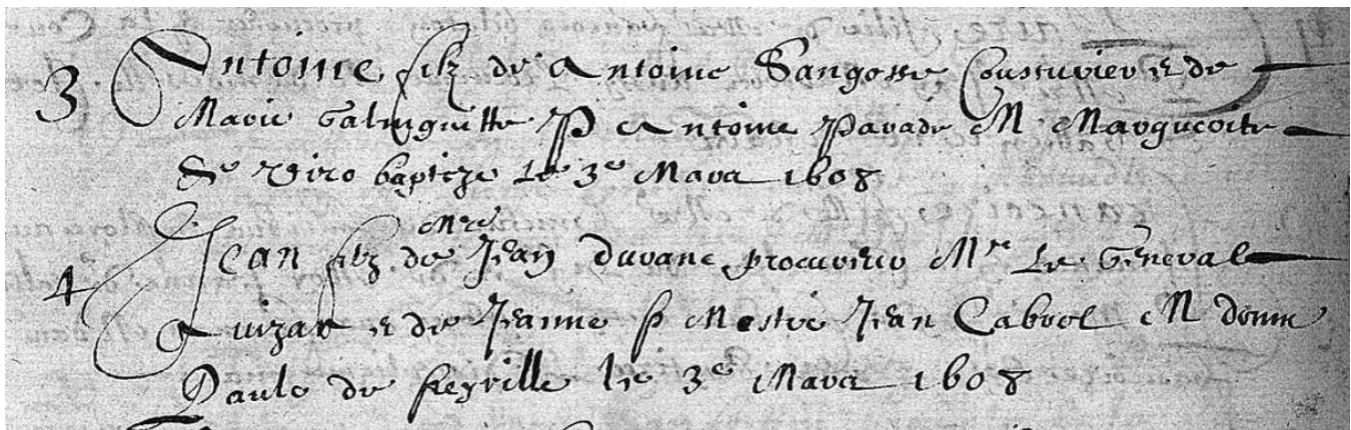 3 Antoine filz de Antoine Sangosse Cousturier et de
Marie P Antoine Parade M Marguerite
de baptize le 3e Mars 1608
4 Jean filz de Mre Jean Durane procureur Mr le General
et de Jeanne p Mestre Jean Cabrol M donne
Paule de le 3e Mars 1608